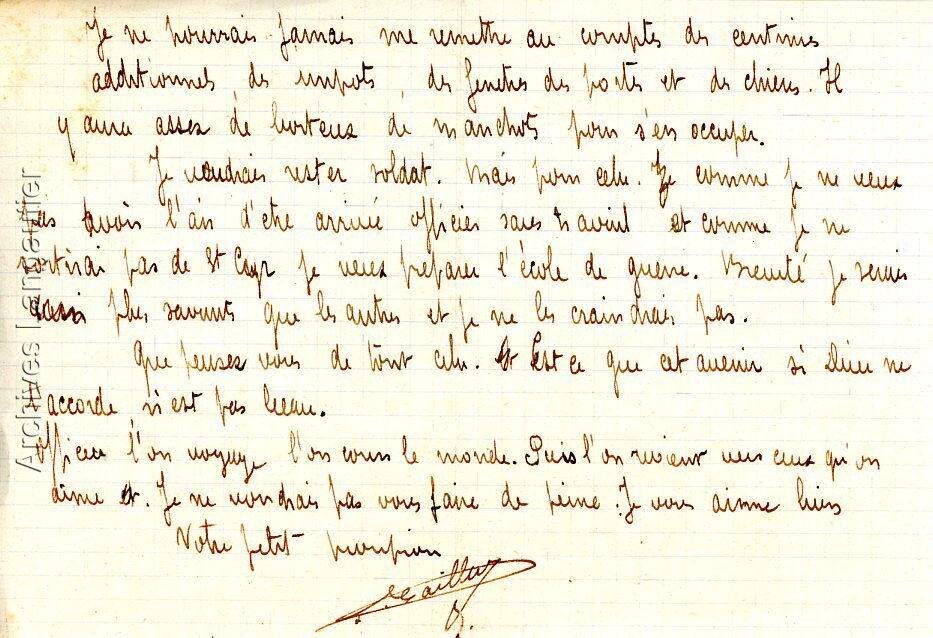 Je ne pourrais jamais me remettre au comptes des centimes
additionnels, des impots, des fenetres des portes et des chiens. Il
y aura assez de boiteux de manchots pour s'en occuper.
Je voudrais rester soldat. Mais pour cela. Je comme je ne veux
pas avoir l'air d'etre arrivé officier sans travail et comme je ne
sortirai pas de St Cyr je veux preparer l'école de guerre. Breveté je serais
aussi plus savants que les autres et je ne les craindrais pas.
Que pensez vous de tout cela. Est ce que cet avenir si Dieu ne
accorde n'est pas beau.
Officier l'on voyage l'on cours le monde. Puis l'on revient vers ceux qu'on
aime et. Je ne voudrais pas vous faire de peine. Je vous aimme bien
Votre petit
Archives Langautier